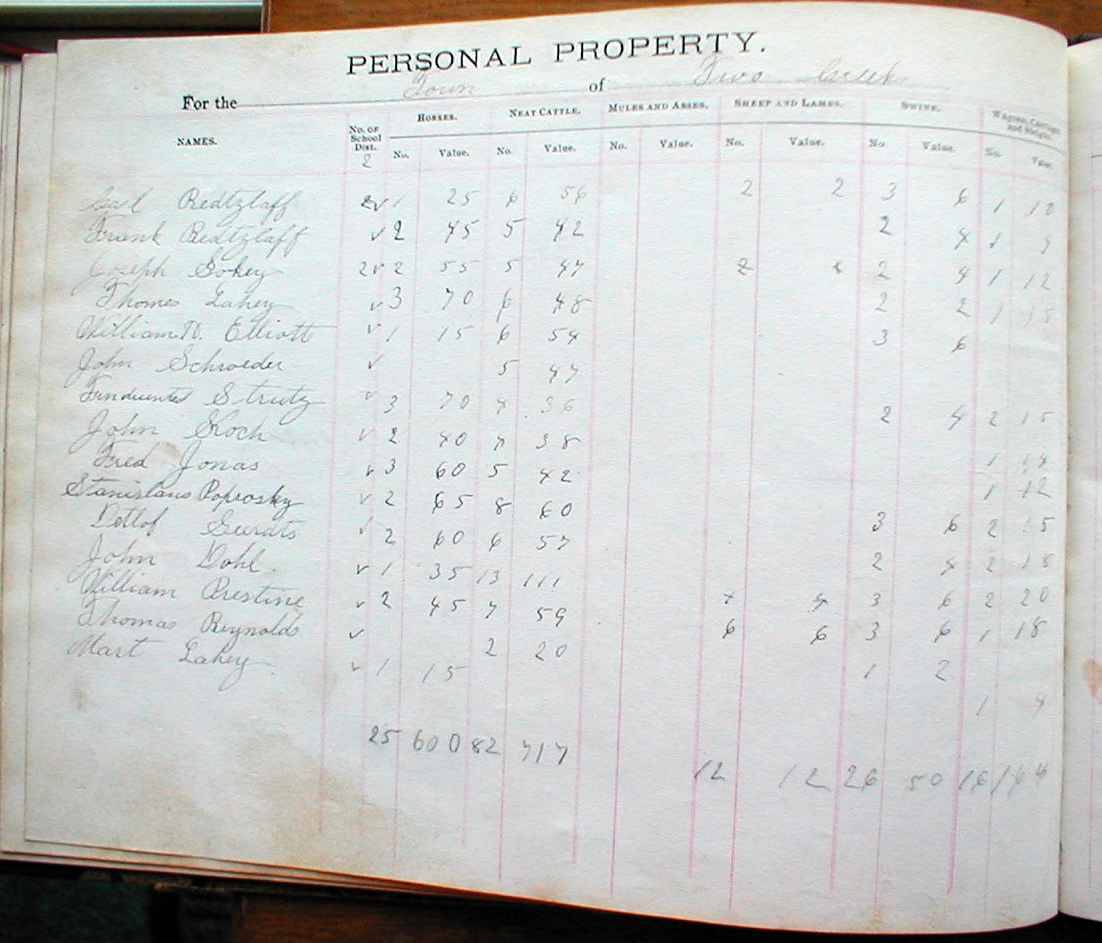 PERSONAL PROPERTY.
For the Town of Two Creek
NAMES. No. OF School Dist. 2 HORSES. No. Value. NEAT CATTLE. No. Value. MULES AND ASSES. No. Value. SHEEP AND LAMBS. No. Value. SWINE. No. Value. Wagons, Carriages and Sleighs. No. Value.
Carl Redtzlaff 2 ✓ 1 25 6 56 2 2 3 6 1 10
Frank Redtzlaff ✓ 2 45 5 42 2 4 1
Joseph Sokey 2 ✓ 2 55 5 47 2 4 1 12
Thomas Lahey ✓ 3 70 6 48 2 2 1
William Elliott ✓ 1 15 6 54 3 6
John Schroeder ✓ 5 47
Strutz ✓ 3 70 4 36 2 4 2 15
John Koch ✓ 2 40 4 38 1
Fred Jonas ✓ 3 60 5 42 1 12
Stanislaus Poprosky ✓ 2 65 8 60 3 6 2 15
Detlof ✓ 2 60 6 57 2 4 2 15
John Dohl. ✓ 1 35 13 111 4 4 3 6 2 20
William Prestine ✓ 2 45 7 59 6 6 3 6 1 18
Thomas Reynolds ✓ 2 20 1 2
Mart Lahey ✓ 1 15 1 4
25 600 82 717 12 12 26 50 16 164